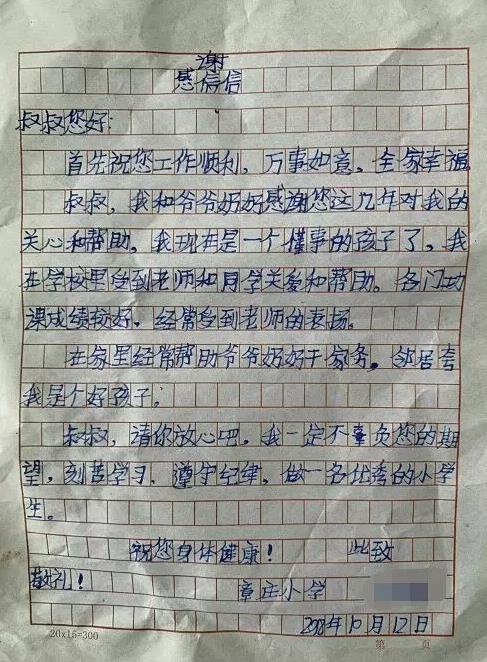 谢
感信信
叔叔您好:
首先祝您工作顺利，万事如意。全家幸福
叔叔，我和爷爷奶奶感谢您这几年对我的
关心和帮助。我现在是一个懂事的孩子了。我
在学校里受到老师和同学关爱和帮助。各门功
课成绩较好。经常受到老师的表扬。
在家里经常帮助爷爷奶奶干家务。邻居夸
我是个好孩子。
叔叔，请你放心吧。我一定不辜负您的期
望，刻苦学习、遵守纪律，做一名优秀的小学
生。
祝您身体健康! 此致
敬礼! 章庄小学
年10月12日
20x15=300 第 页